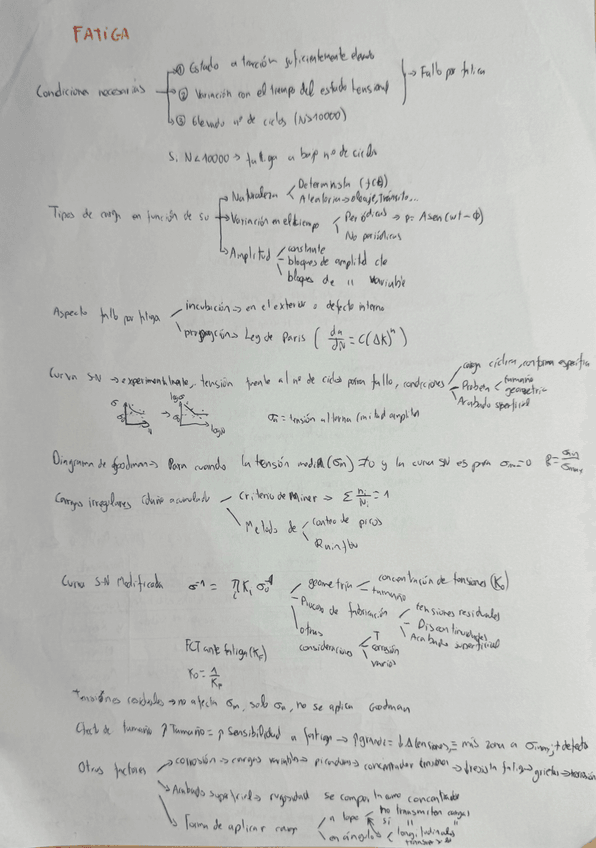 FATIGA
① Estado a tracción suficientemente elevado
Condiciones necesarias ② Variación con el tiempo del estado tensional → Fallo por fatiga
③ Elevado nº de ciclos (N>10000)
Si N<10000 → fatiga a bajo nº de ciclos
Naturaleza Determinista (f(t))
Aleatoria → oleaje, tránsito...
Tipos de carga en función de su Variación en el tiempo Periódicas → p = A sen(wt-φ)
No periódicas
Amplitud constante
bloques de amplitud cte
bloques de " variable
Aspecto fallo por fatiga incubación → en el exterior o defecto interno
propagación → Ley de Paris (da/dN = C(ΔK)^n)
Curva S-N → experimentalmente, tensión frente al nº de ciclos para fallo, condiciones carga cíclica, con forma específica
Probeta tamaño
geometría
Acabado superficial
σ N log σ log N
σa = tensión alterna (mitad amplitud
Diagrama de Goodman → Para cuando la tensión media (σm) ≠ 0 y la curva SN es para σm=0
Cargas irregulares (daño acumulado Criterio de Miner → Σ ni/Ni = 1
Metodo de conteo de picos
Rainflow
Curva S-N Modificada geometría concentración de tensiones
tamaño
Proceso de fabricación tensiones residuales
Discontinuidades
Acabado superficial
otras consideraciones T
corrosión
varios
FCT ante fatiga (KF)
tensiones residuales → no afecta σa, solo σm, no se aplica Goodman
Efecto de tamaño ↑ Tamaño = ↑ sensibilidad a fatiga → más zona a σmax, + defecto
Otros factores corrosión → cargas variables → picaduras → concentrador tensiones → ↓ resist fatiga → grietas
Acabado superficial → rugosidad se comporta como concentrador
Forma de aplicar carga a tope no transmiten carga
si " "
en ángulo longitudinales
transversales